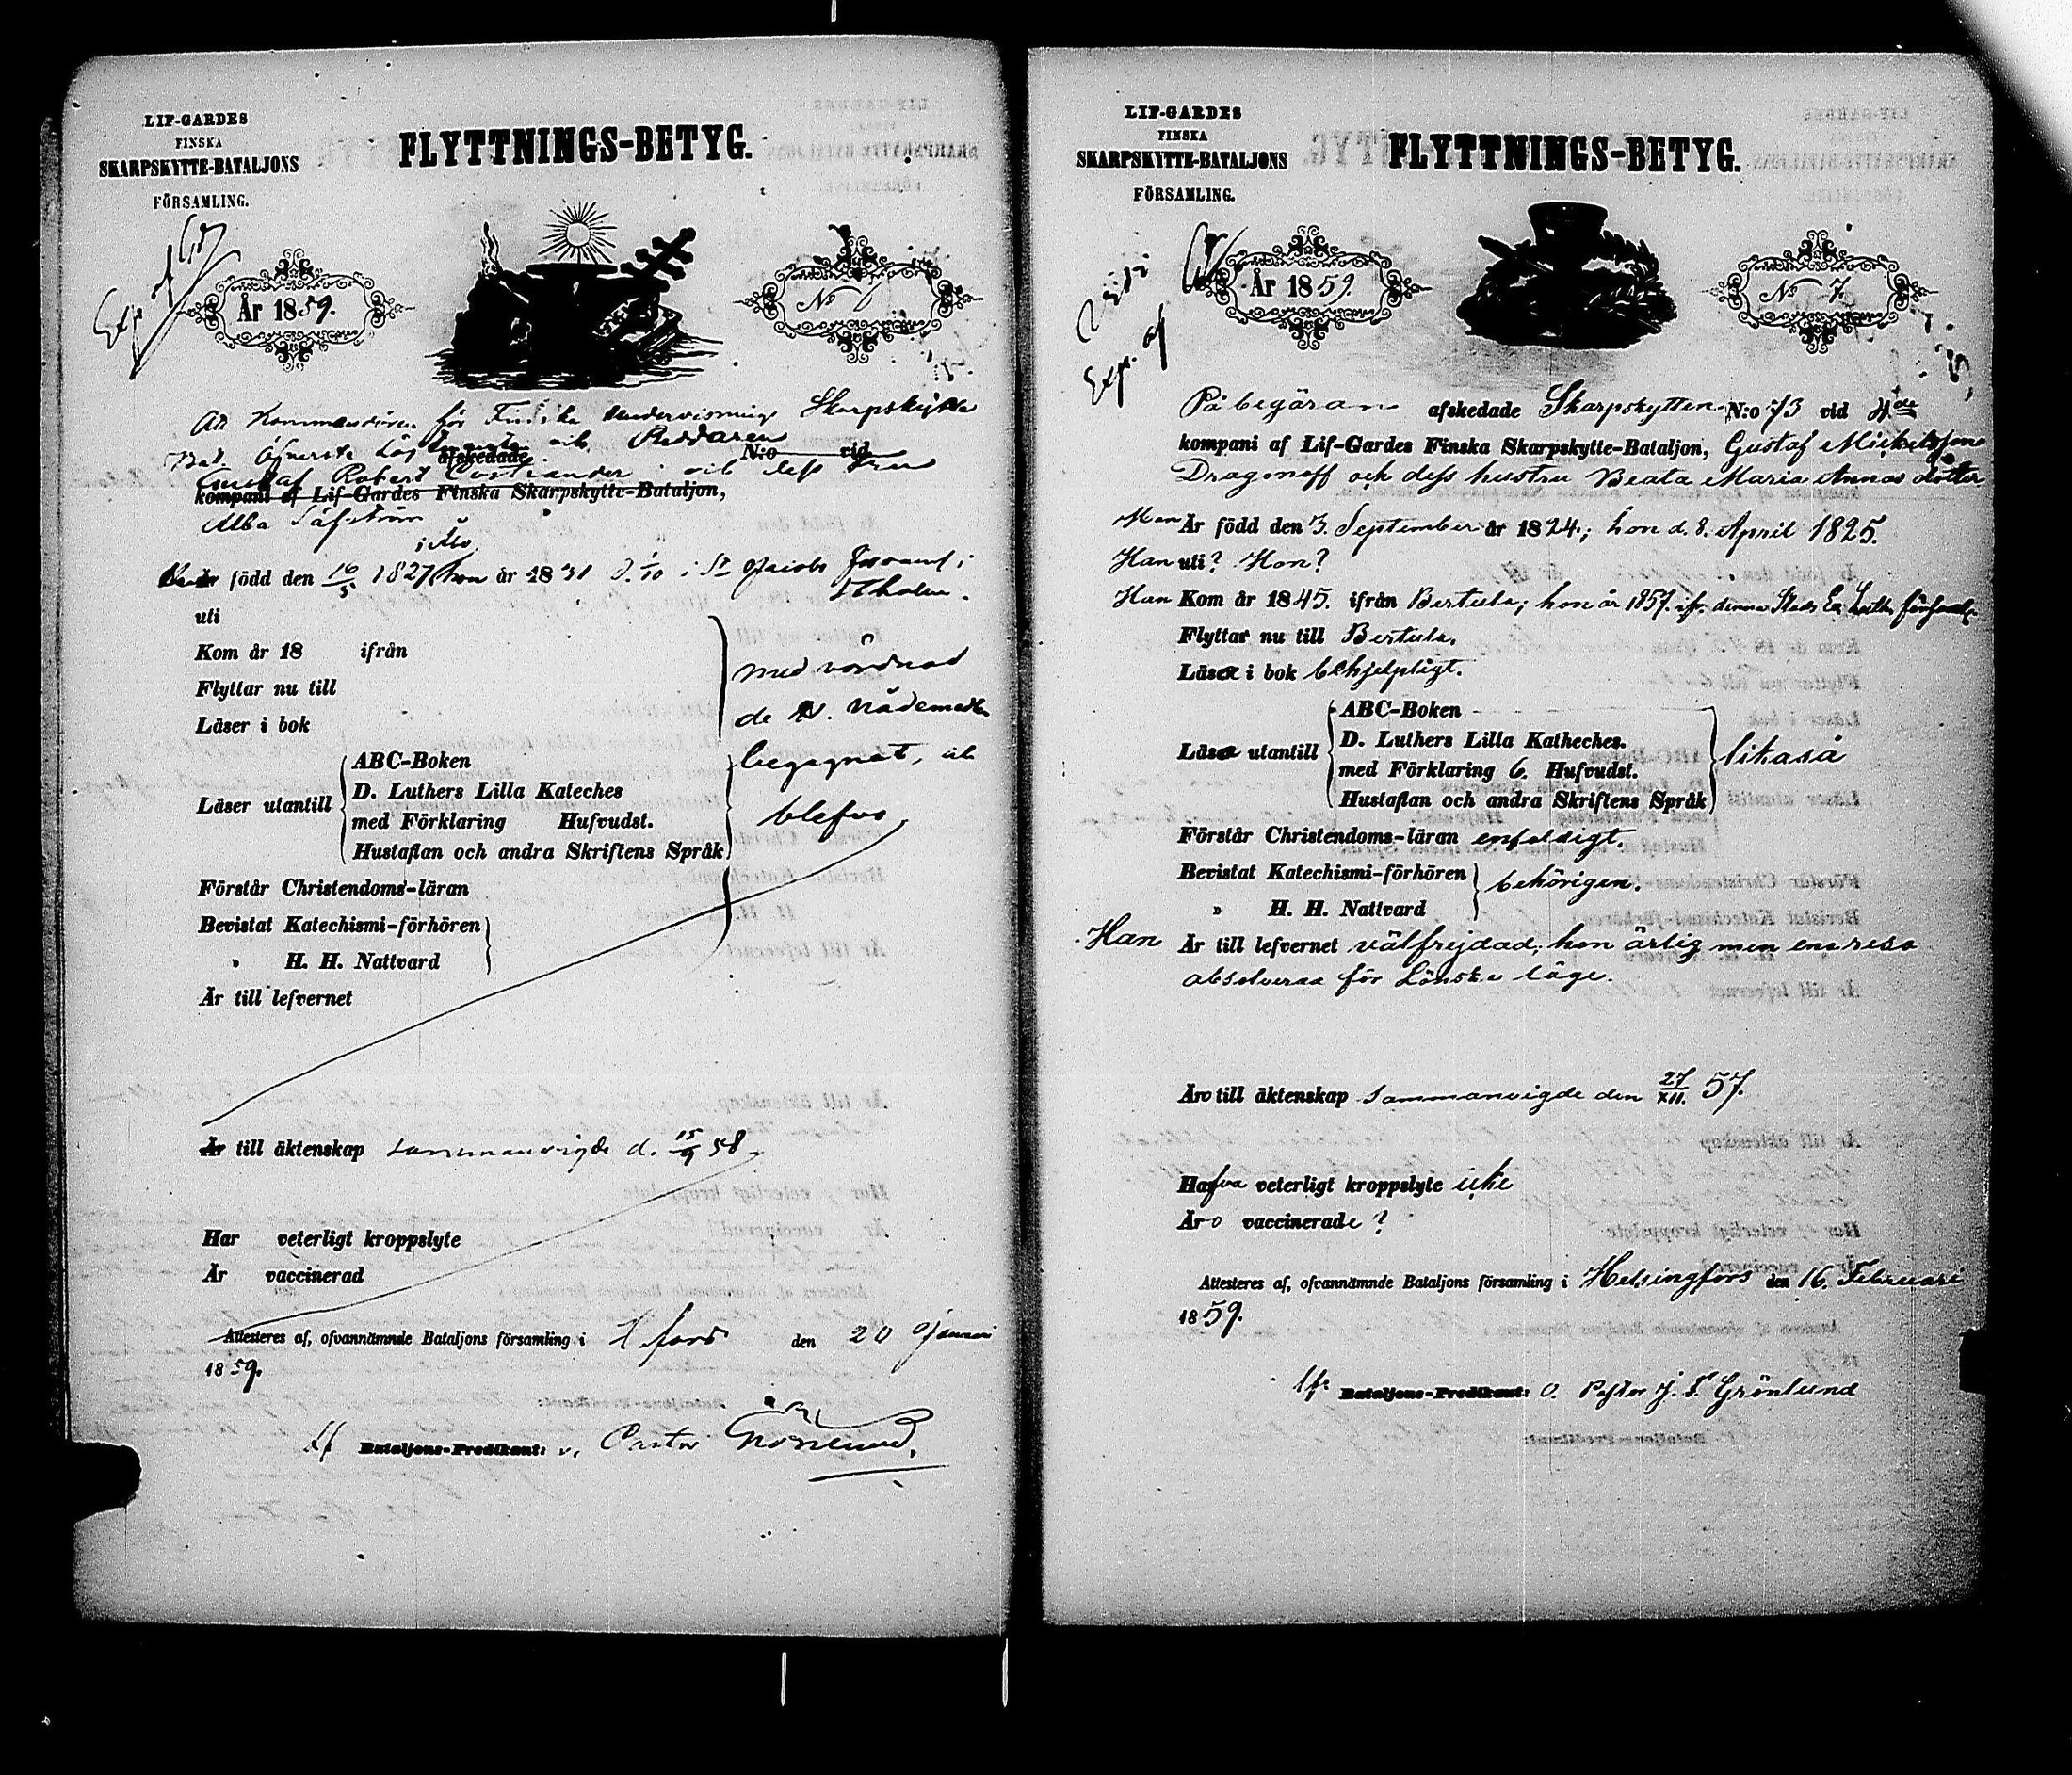 LIF-GARDES
FINSKA
SKARPSKYTTE-BATALJONS
FÖRSAMLING.
FLYTTNINGS-BETYG.
År 1859.
No 6
At Kommendören för Finska Undervisnings Skarpskytte
Bat. Öfverste och Riddaren
afskedade N:o vid
Gustaf Robert och dess Fru
kompani af Lif-Gardes Finska Skarpskytte-Bataljon,
Alba Säfström
i Åbo
född den 16/5 1827 hon år 1831 d. 1/10 i St Jacobs Församl i
Stholm.
uti
Kom år 18 ifrån
Flyttar nu till
Läser i bok
med vördnad
de H. Nådemedlen
begagnat, och
blefvo
Läser utantill
ABC-Boken
D. Luthers Lilla Kateches
med Förklaring Hufvudst.
Hustaflan och andra Skriftens Språk
Förstår Christendoms-läran
Bevistat Katechismi-förhören
" H. H. Nattvard
Är till lefvernet
Är till äktenskap sammanvigde d. 15/9 58
Har veterligt kroppslyte
Är vaccinerad
Attesteres af, ofvannämnde Bataljons församling i Hfors den 20 Januari
1859.
Bataljons-Predikant: v. Pastor Grönlund.
LIF-GARDES
FINSKA
SKARPSKYTTE-BATALJONS
FÖRSAMLING.
FLYTTNINGS-BETYG.
Exp. af
År 1859.
No 7.
På begäran afskedade Skarpskytten N:o 73 vid 4de
kompani af Lif-Gardes Finska Skarpskytte-Bataljon, Gustaf Mickelsson
Dragonoff och dess hustru Beata Maria Annas dotter
Han Är född den 3. September år 1824; hon d. 8. April 1825.
Han uti? Hon?
Han Kom år 1845. ifrån Bertula; hon år 1857. ifr. denna Stads Ev. Luth. församl.
Flyttar nu till Bertula.
Läsa i bok behjelpligt.
Läsa utantill
ABC-Boken
D. Luthers Lilla Katheches.
med Förklaring 6. Hufvudst.
Hustaflan och andra Skriftens Språk
likaså
Förstår Christendoms-läran enfaldigt.
Bevistat Katechismi-förhören
" H. H. Nattvard
behörigen.
Han Är till lefvernet välfrejdad, hon ärlig men en resa
absolverad för Lönska läge.
Äro till äktenskap sammanvigde den 27/XII. 57.
Hafva veterligt kroppslyte icke
Äro vaccinerade?
Attesteres af, ofvannämnde Bataljons församling i Helsingfors den 16. Februari
1859.
Bataljons-Predikant: v. Pastor J. F. Grönlund